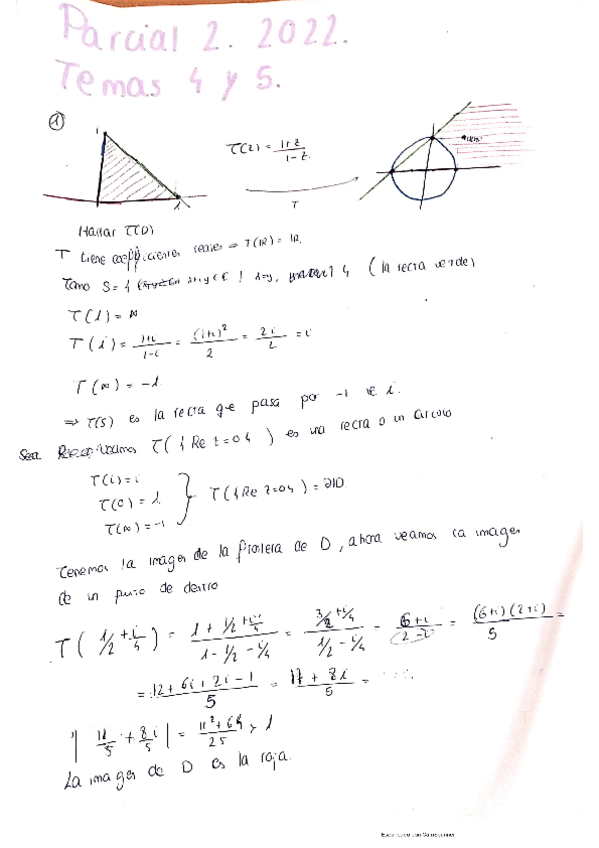 Parcial 2. 2022.
Temas 4 y 5.
①
i
1
T(z) = 1+z / 1-z
T
Hallar T(D)
T tiene coefficientes reales ⇒ T(ℝ) = ℝ.
Tomo S = { x+iy ∈ ℂ | } (la recta verde)
T(1) = ∞
T(i) = 1+i / 1-i = (1+i)² / 2 = 2i / 2 = i
T(∞) = -1
⇒ T(S) es la recta que pasa por -1 e i.
Veamos T({Re z=0}) es una recta o un circulo
T(i) = i
T(0) = 1
T(∞) = -1
} T({Re z=0}) = ∂ID
Tenemos la imagen de la frontera de D, ahora veamos la imagen
de un punto de dentro
T(1/2 + i/4) = 1 + 1/2 + i/4 / 1 - 1/2 - i/4 = 3/2 + i/4 / 1/2 - i/4 = 6+i / 2-i = (6+i)(2+i) / 5 =
= 12 + 6i + 2i - 1 / 5 = 11 + 8i / 5 =
| 11/5 + 8/5 i | = 11² + 64 / 25 > 1
La imagen de D es la roja.
Escaneado con CamScanner